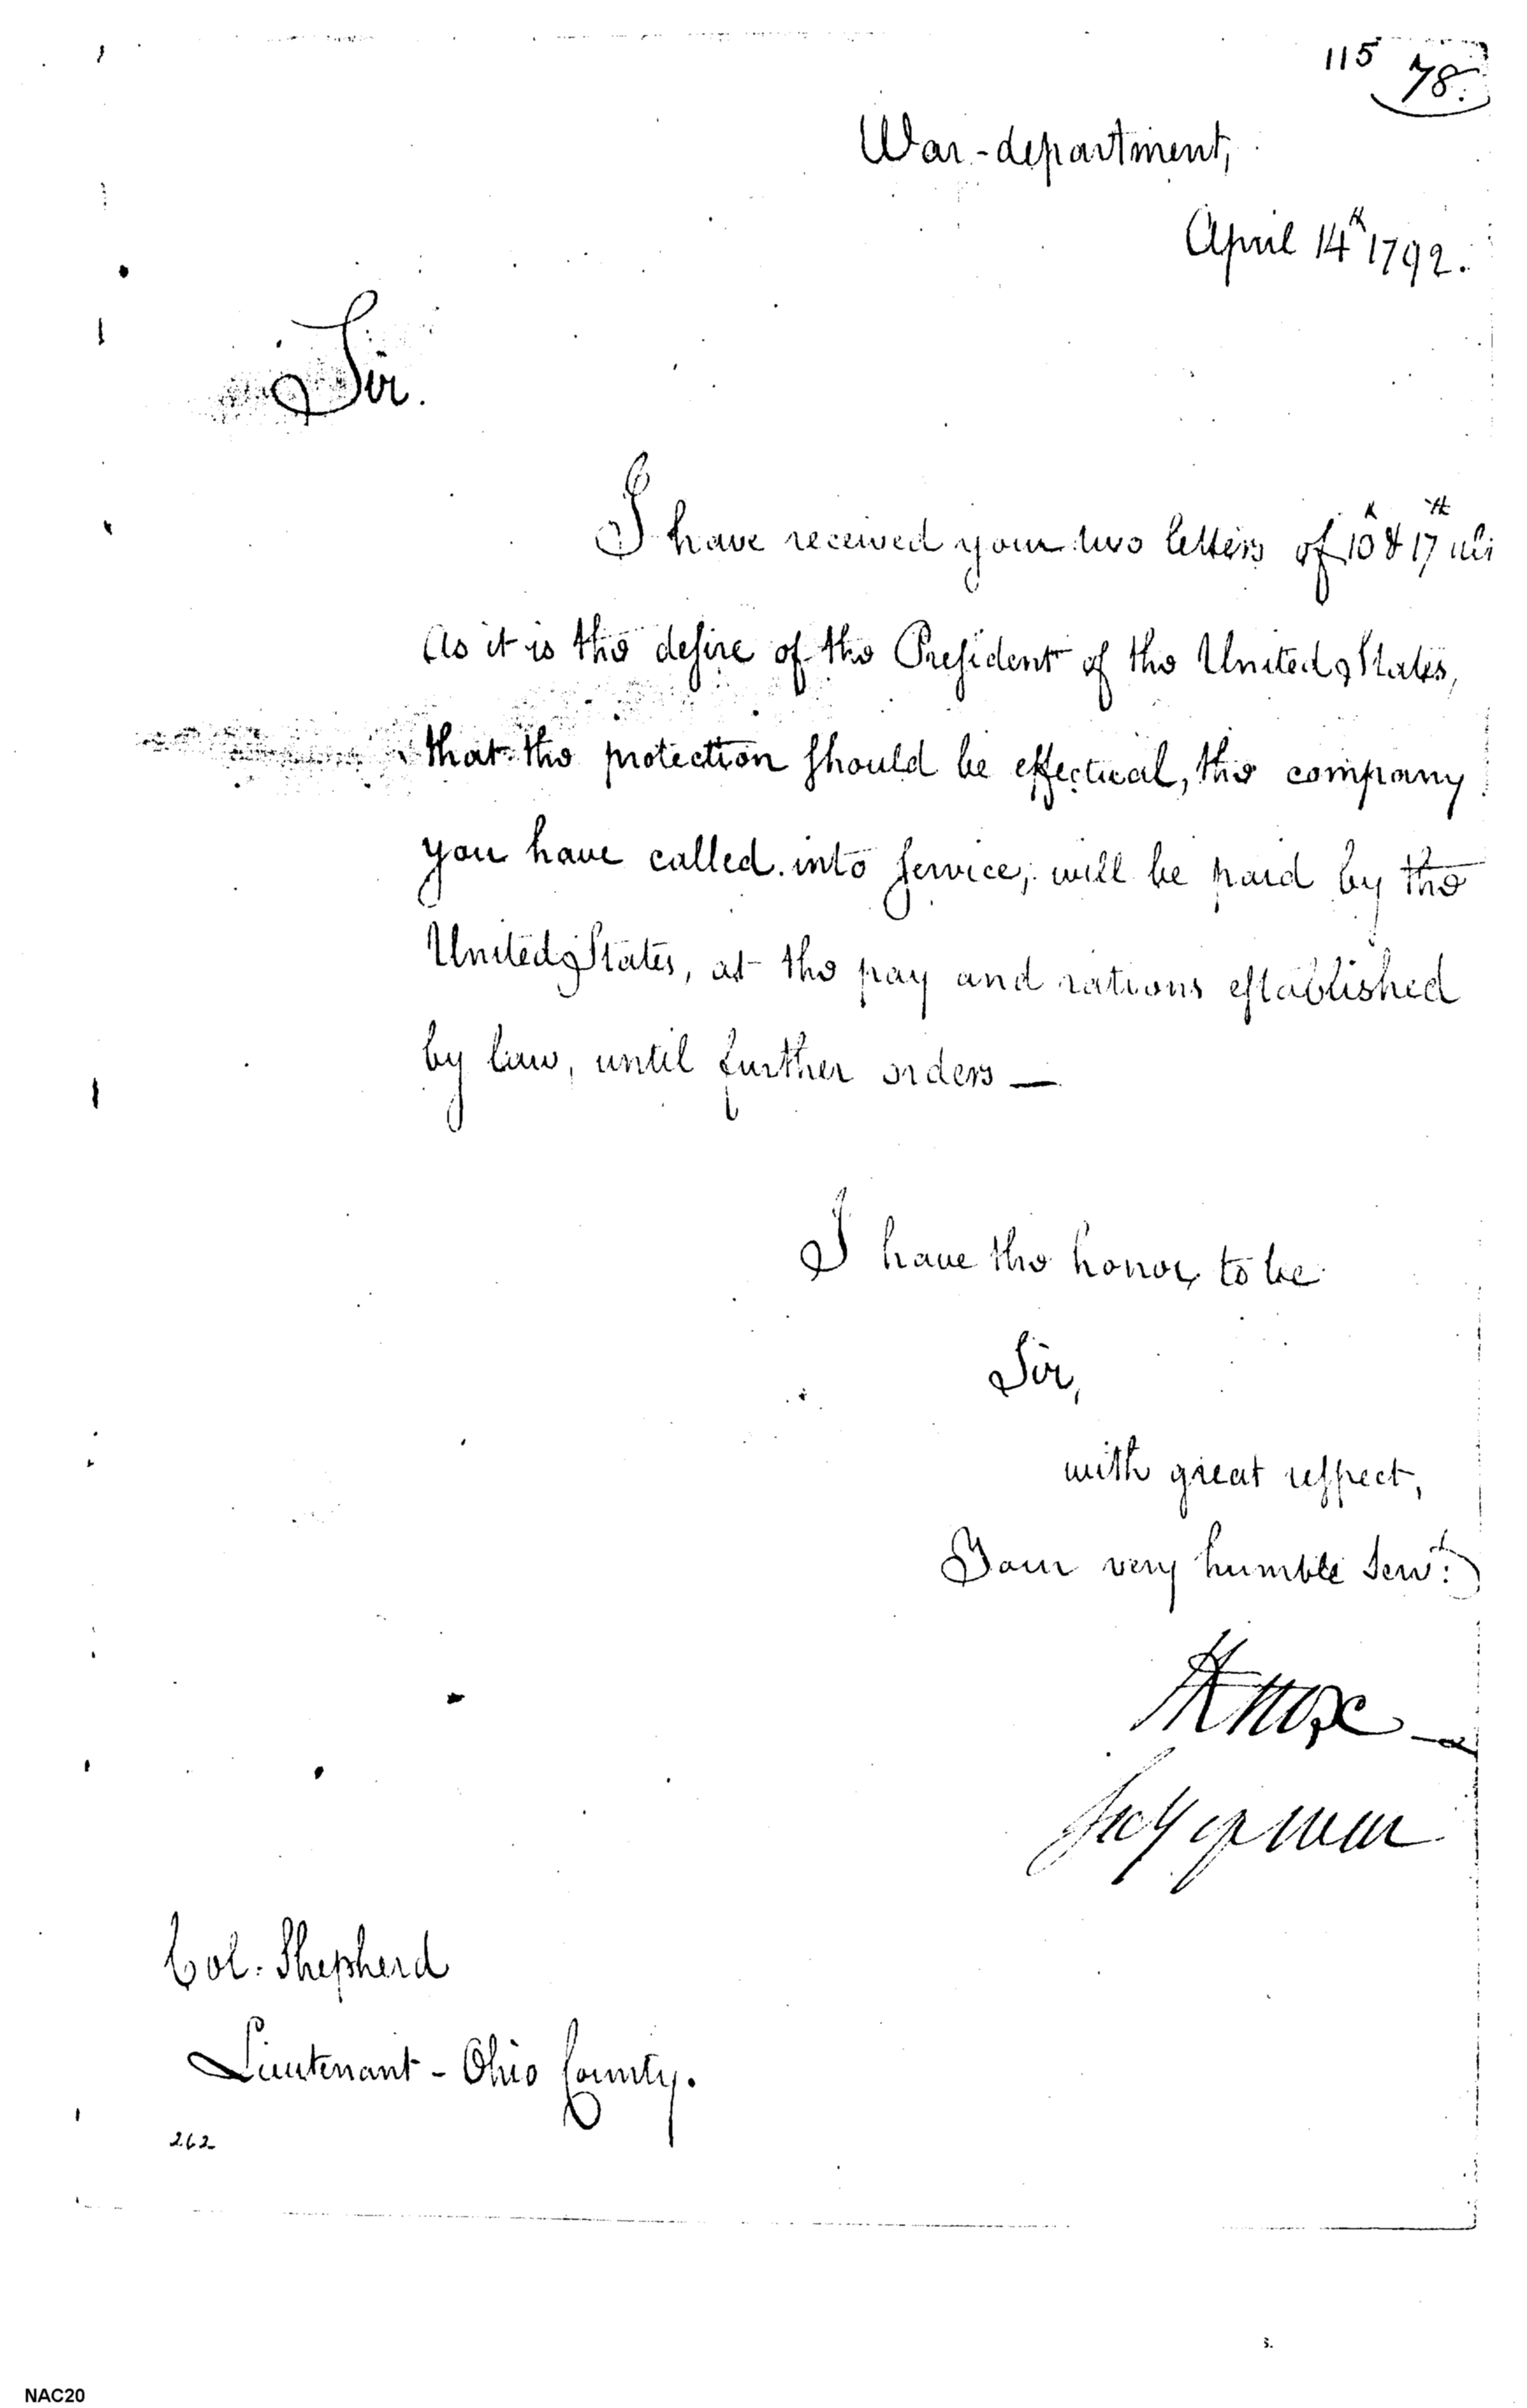 115 78.
War-department,
April 14th 1792.
Sir.
I have received your two letters of 10th & 17th ult
As it is the desire of the President of the United States,
that the protection should be effectual, the company
you have called into service, will be paid by the
United States, at the pay and rations established
by law, until further orders —
I have the honor to be
Sir,
with great respect,
Your very humble Servt:
HKnox
Secy of War
Col. Shepherd
Lieutenant - Ohio County.
262
s.
NAC20